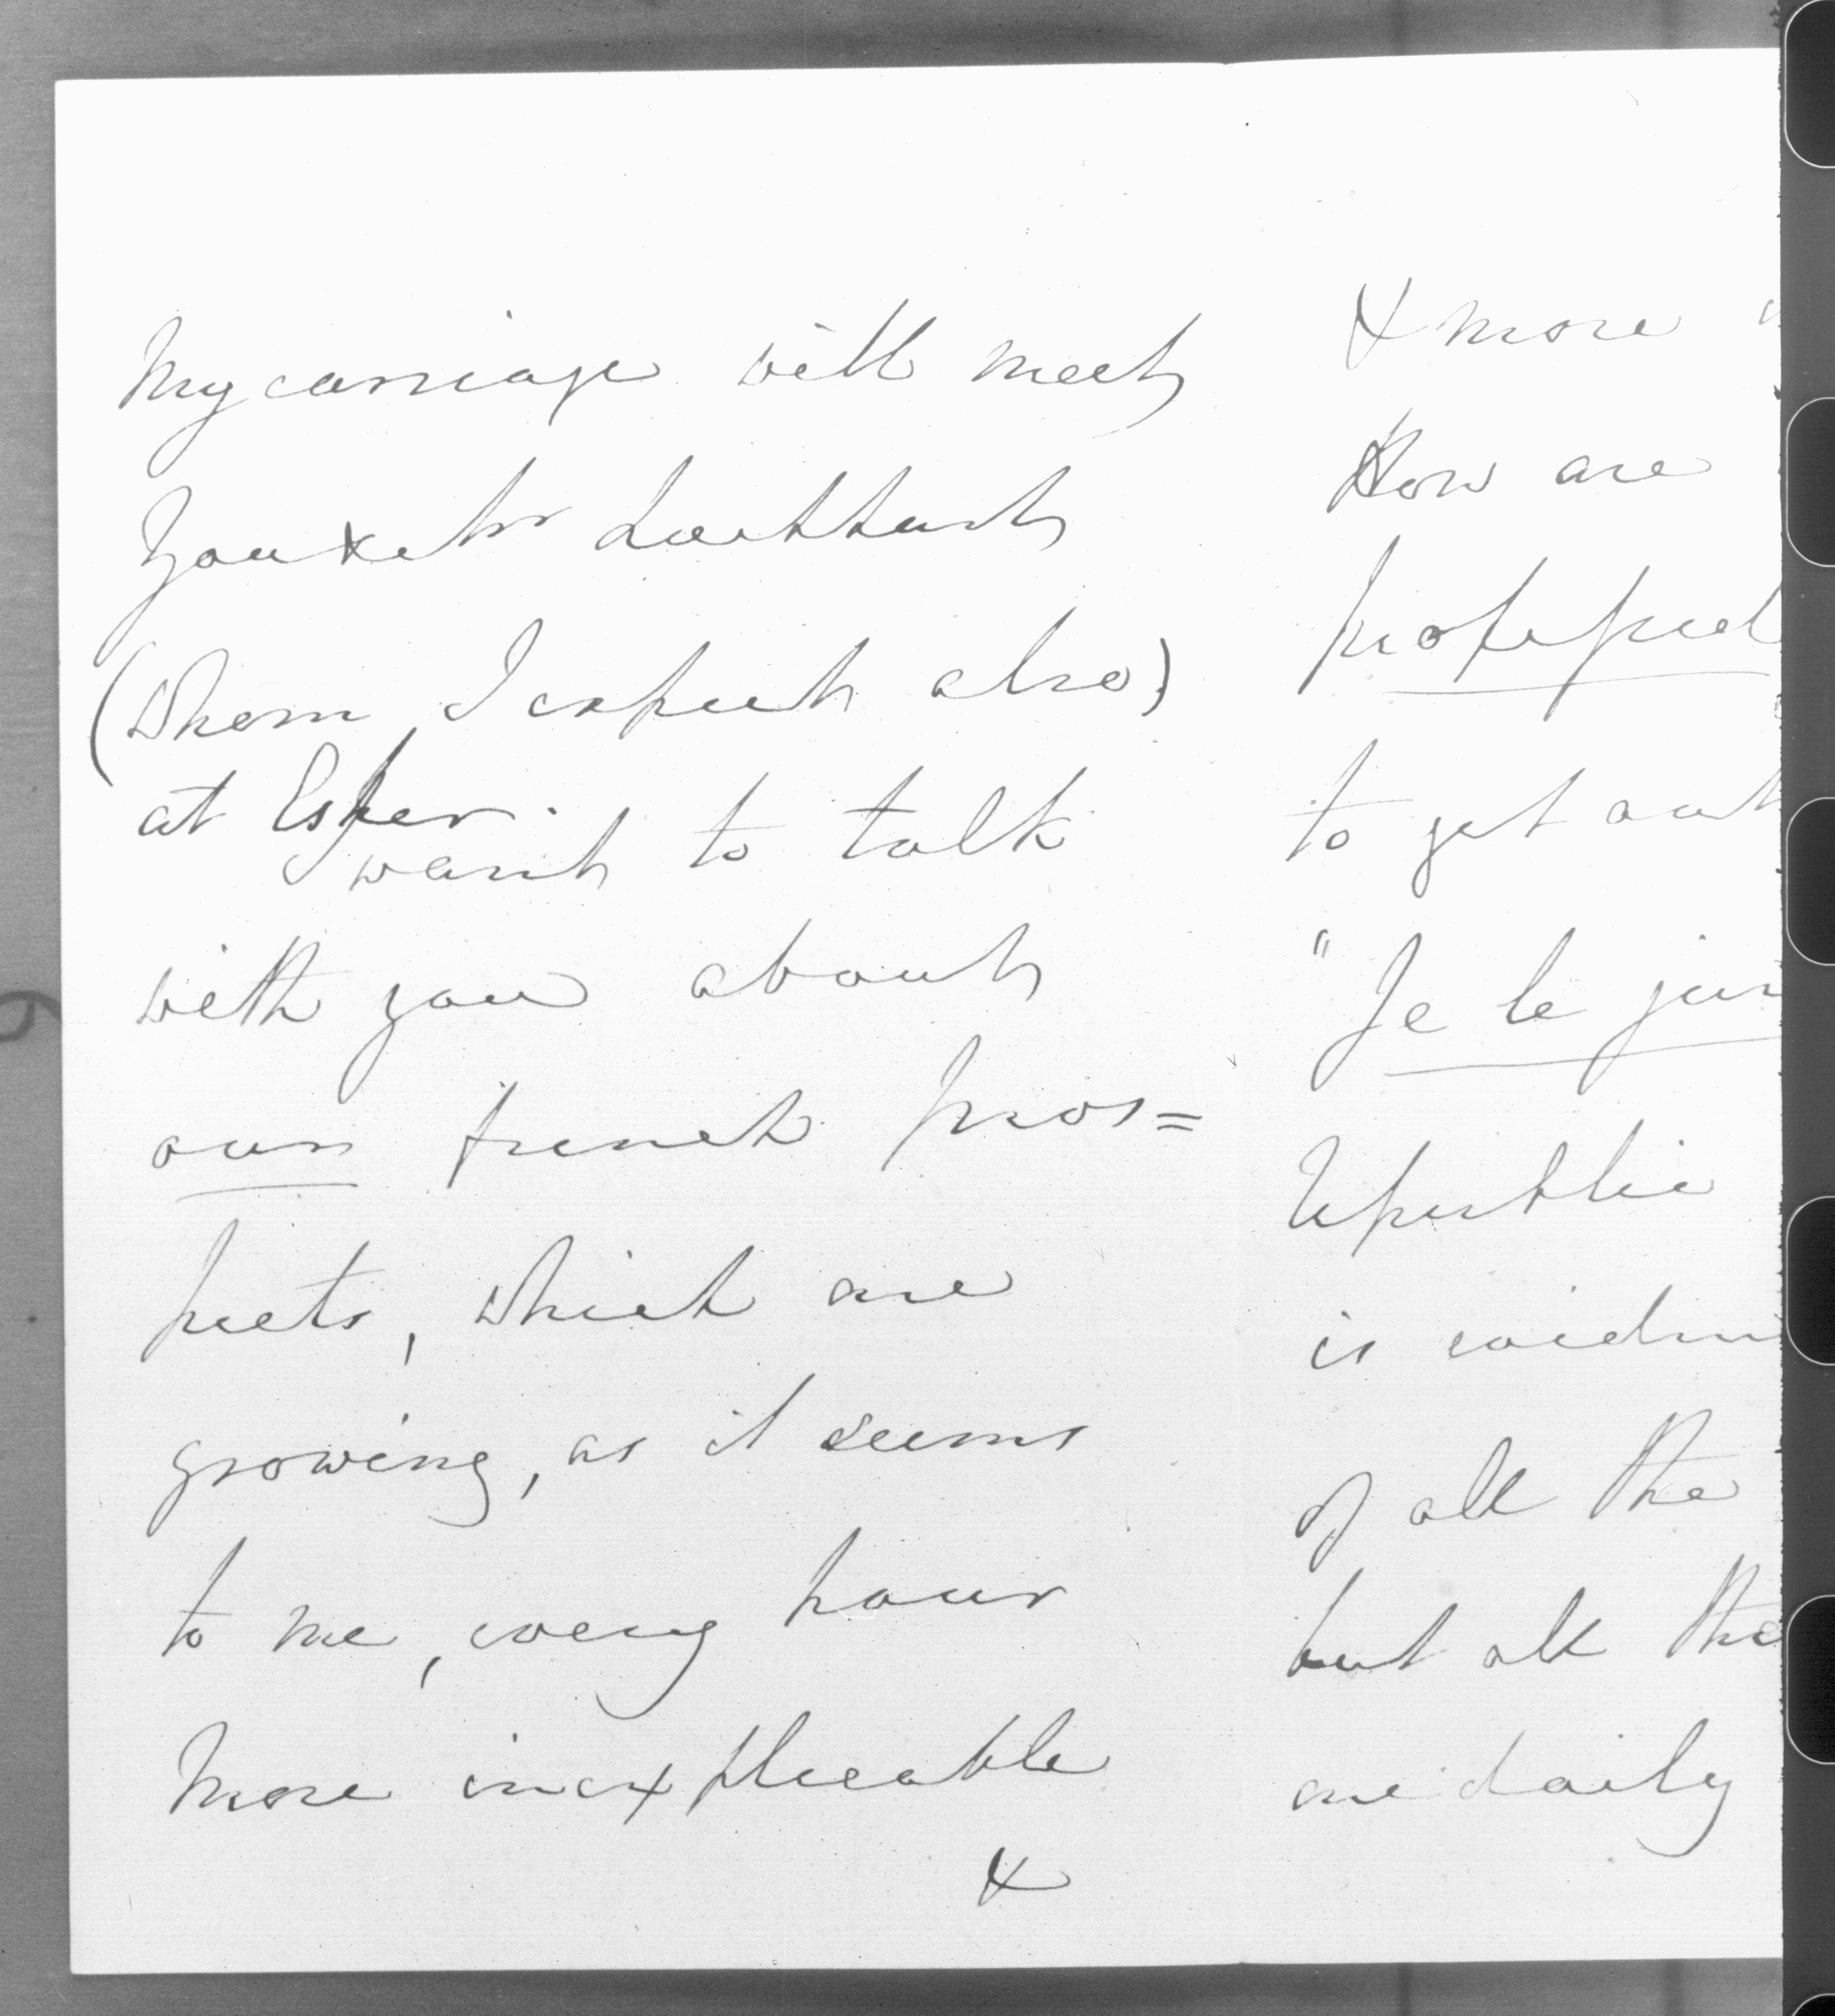 My carriage will meet
you & Mr Lockhart
(whom I expect also)
at Esher.
want to talk
with you about
our french pros=
pects, which are
growing, as it seems
to me, every hour
more inexplicable
&
& more
How are
to get out
"Je le jur
Republic
is eviden
of all the
but all the
are daily